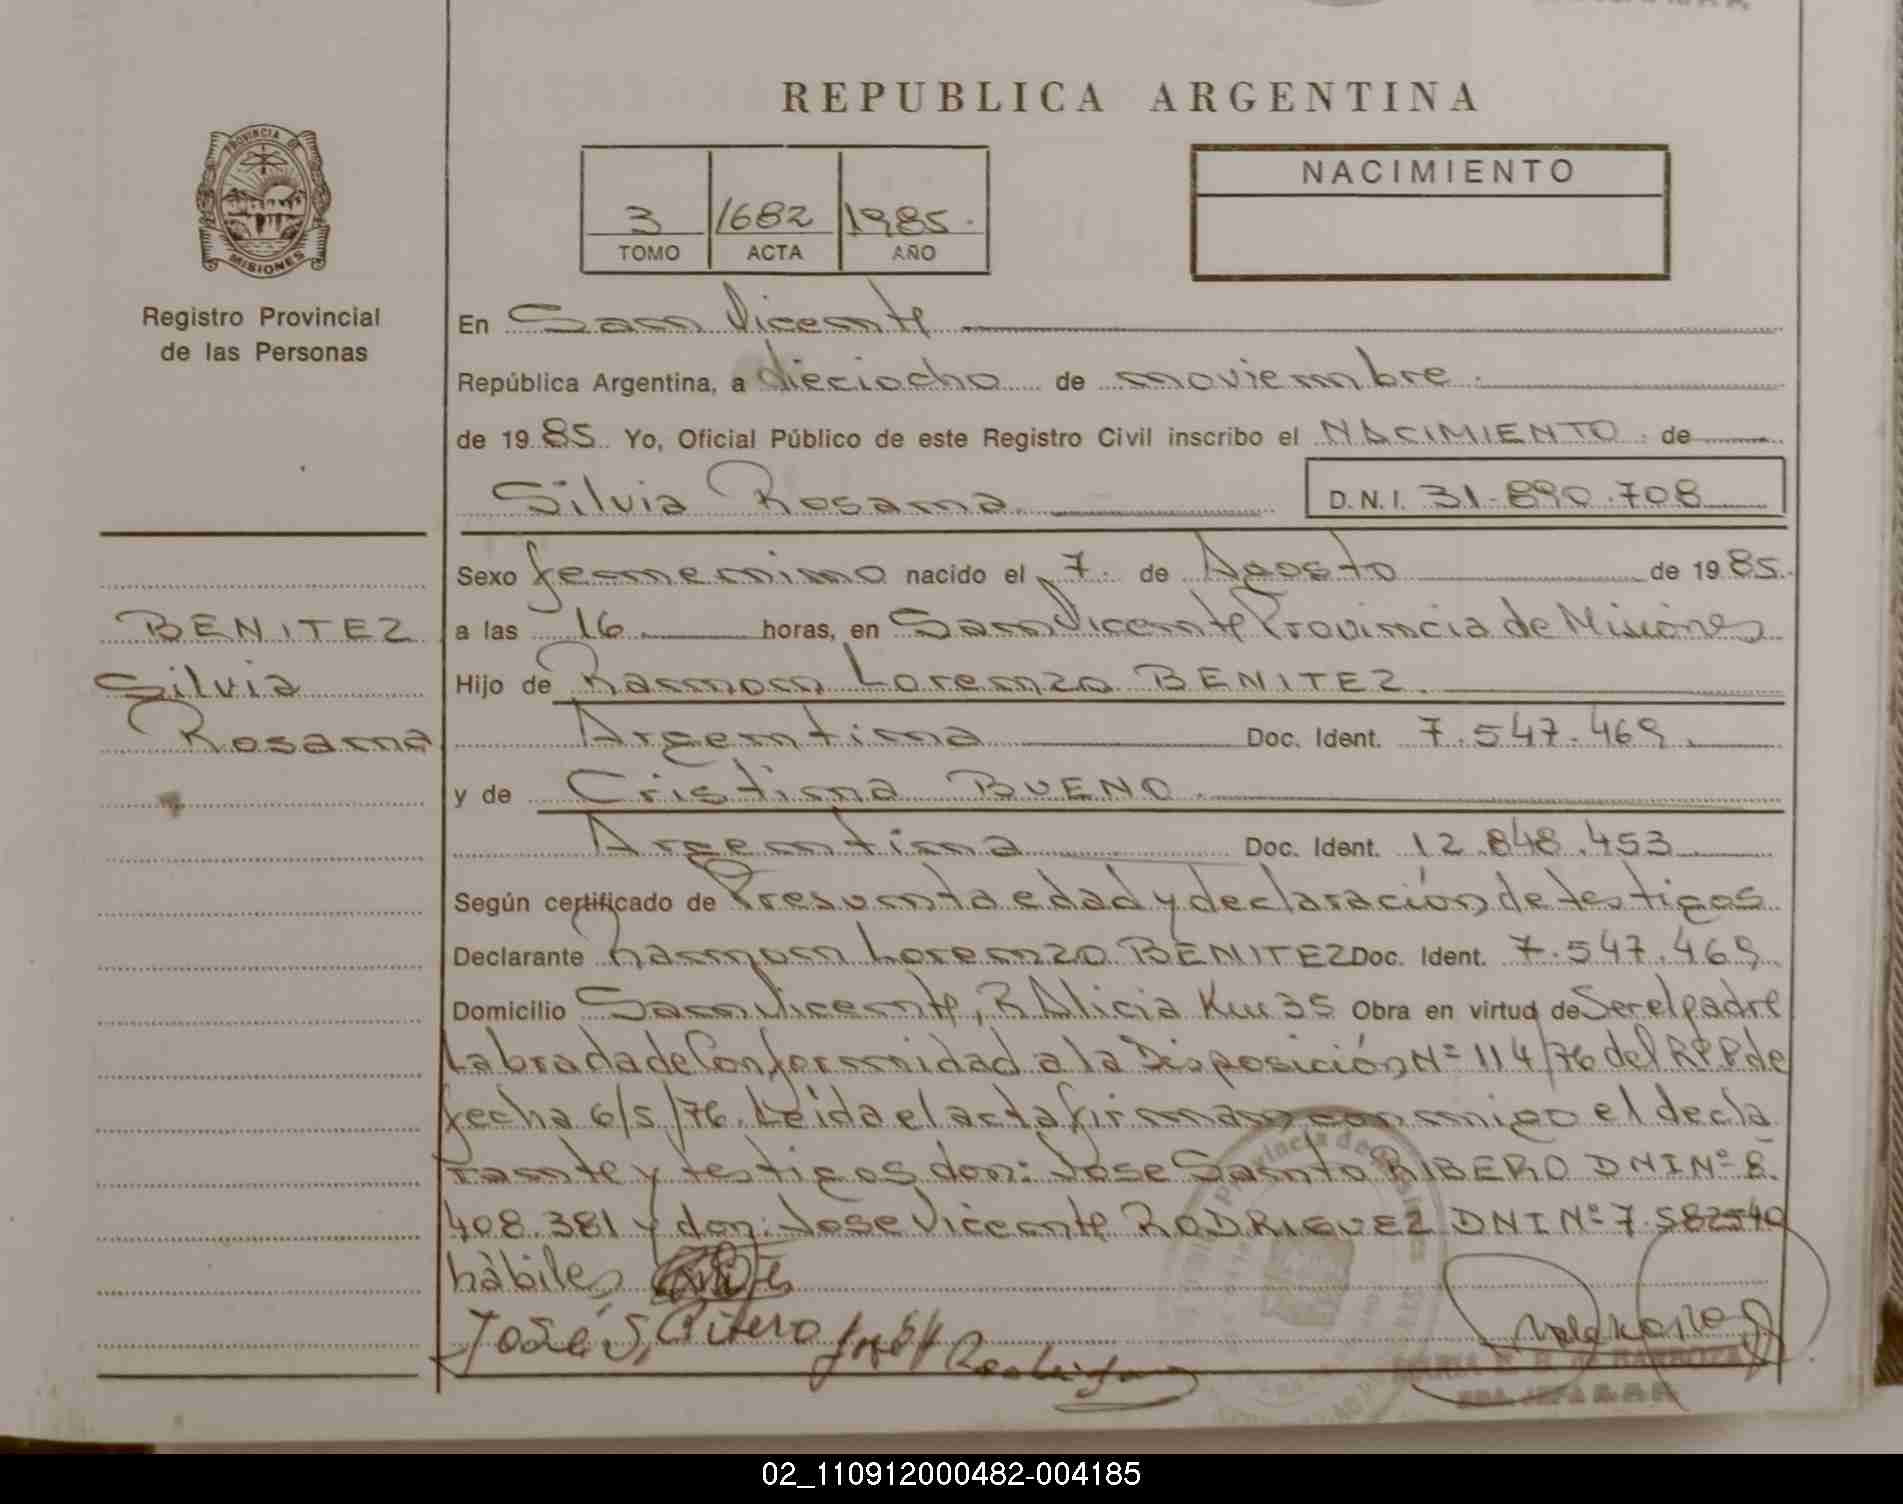 REPUBLICA ARGENTINA
PROVINCIA DE
MISIONES
Registro Provincial
de las Personas
3 1682 1985.
TOMO ACTA AÑO
NACIMIENTO
En San Vicente
República Argentina, a dieciocho de noviembre.
de 1985. Yo, Oficial Público de este Registro Civil inscribo el NACIMIENTO de
Silvia Rosana
D.N.I. 31.890.708
BENITEZ
Silvia
Rosana
Sexo femenino nacido el 7. de Agosto de 1985.
a las 16 horas, en San Vicente Provincia de Misiones
Hijo de Ramon Lorenzo BENITEZ.
Argentina Doc. Ident. 7.547.469.
y de Cristina BUENO.
Argentina Doc. Ident. 12.848.453
Según certificado de Presunta edad y declaración de testigos
Declarante Ramon Lorenzo BENITEZ Doc. Ident. 7.547.469
Domicilio San Vicente, P. Alicia Km 35 Obra en virtud de Ser el padre
Labrada de Conformidad a la Disposición Nº 114/76 del RPP de
fecha 6/5/76. Leida el acta firman conmigo el decla
rante y testigos don: Jose Santo RIBERO DNI Nº 8.
408.381 y don: Jose Vicente RODRIGUEZ DNI Nº 7.582540
hàbiles
José S, Rivero José V Rodriguez
MARIA E. B. de BARBOZA
02_110912000482-004185